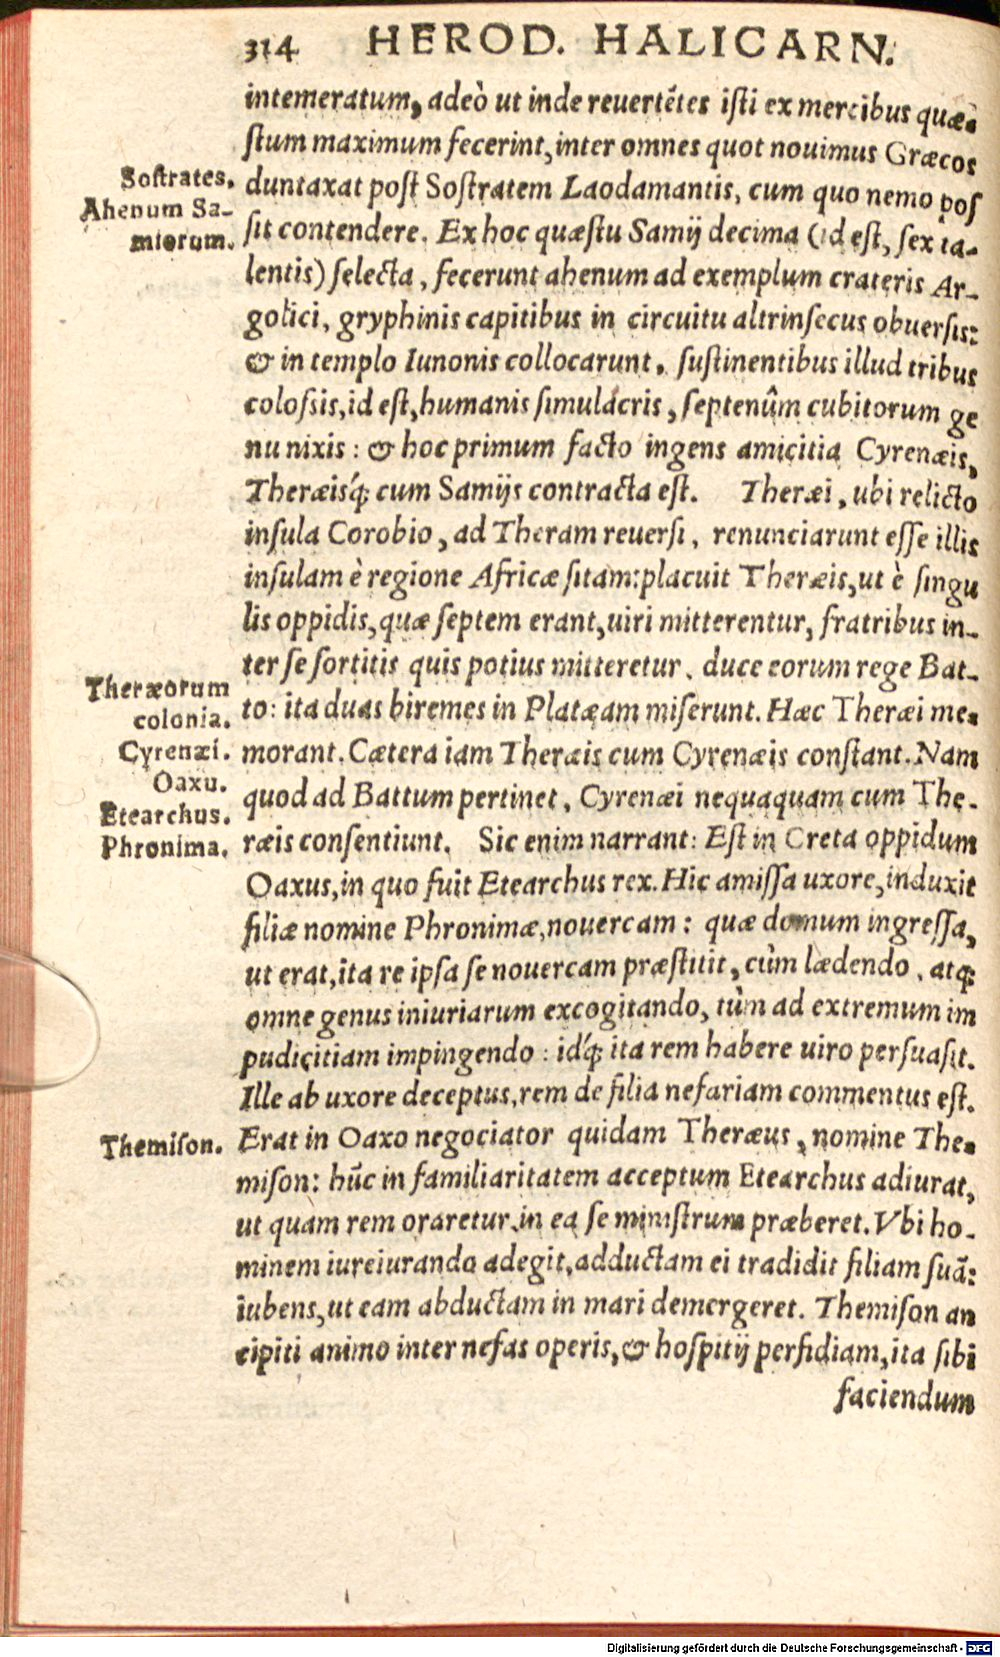 314 HEROD. HALICARN.
intemeratum, adeò ut inde reuertẽtes iſti ex mercibus quæ-
ſtum maximum fecerint, inter omnes quot nouimus Græcos
Soſtrates. duntaxat poſt Soſtratem Laodamantis, cum quo nemo poſ
Ahenum Sa-
miorum. ſit contendere. Ex hoc quæſtu Samij decima (id eſt, ſex ta-
lentis) ſelecta, fecerunt ahenum ad exemplum crateris Ar-
golici, gryphinis capitibus in circuitu altrinſecus obuerſis:
& in templo Iunonis collocarunt, ſuſtinentibus illud tribus
coloſsis, id eſt, humanis ſimulacris, ſeptenûm cubitorum ge
nu nixis: & hoc primum facto ingens amicitia Cyrenæis,
Theræisq́; cum Samijs contracta eſt. Theræi, ubi relicto
inſula Corobio, ad Theram reuerſi, renunciarunt eſſe illis
inſulam è regione Africæ ſitam: placuit Theræis, ut è ſingu
lis oppidis, quæ ſeptem erant, uiri mitterentur, fratribus in-
ter ſe ſortitis quis potius mitteretur, duce eorum rege Bat-
Theræorum
colonia. to: ita duas biremes in Platæam miſerunt. Hæc Theræi me-
Cyrenæi. morant. Cætera iam Theræis cum Cyrenæis conſtant. Nam
Oaxu.
Etearchus. quod ad Battum pertinet, Cyrenæi nequaquam cum The-
Phronima. ræis conſentiunt. Sic enim narrant: Eſt in Creta oppidum
Oaxus, in quo fuit Etearchus rex. Hic amiſſa uxore, induxit
filiæ nomine Phronimæ, nouercam: quæ domum ingreſſa,
ut erat, ita re ipſa ſe nouercam præſtitit, cùm lædendo, atq;
omne genus iniuriarum excogitando, tùm ad extremum im
pudicitiam impingendo: idq́; ita rem habere uiro perſuaſit.
Ille ab uxore deceptus, rem de filia nefariam commentus eſt.
Themiſon. Erat in Oaxo negociator quidam Theræus, nomine The-
miſon: hũc in familiaritatem acceptum Etearchus adiurat,
ut quam rem oraretur, in ea ſe miniſtrum præberet. Vbi ho-
minem iureiurando adegit, adductam ei tradidit filiam ſuã:
iubens, ut eam abductam in mari demergeret. Themiſon an
cipiti animo inter nefas operis, & hoſpitij perfidiam, ita ſibi
faciendum
Digitalisierung gefördert durch die Deutsche Forschungsgemeinschaft - DFG